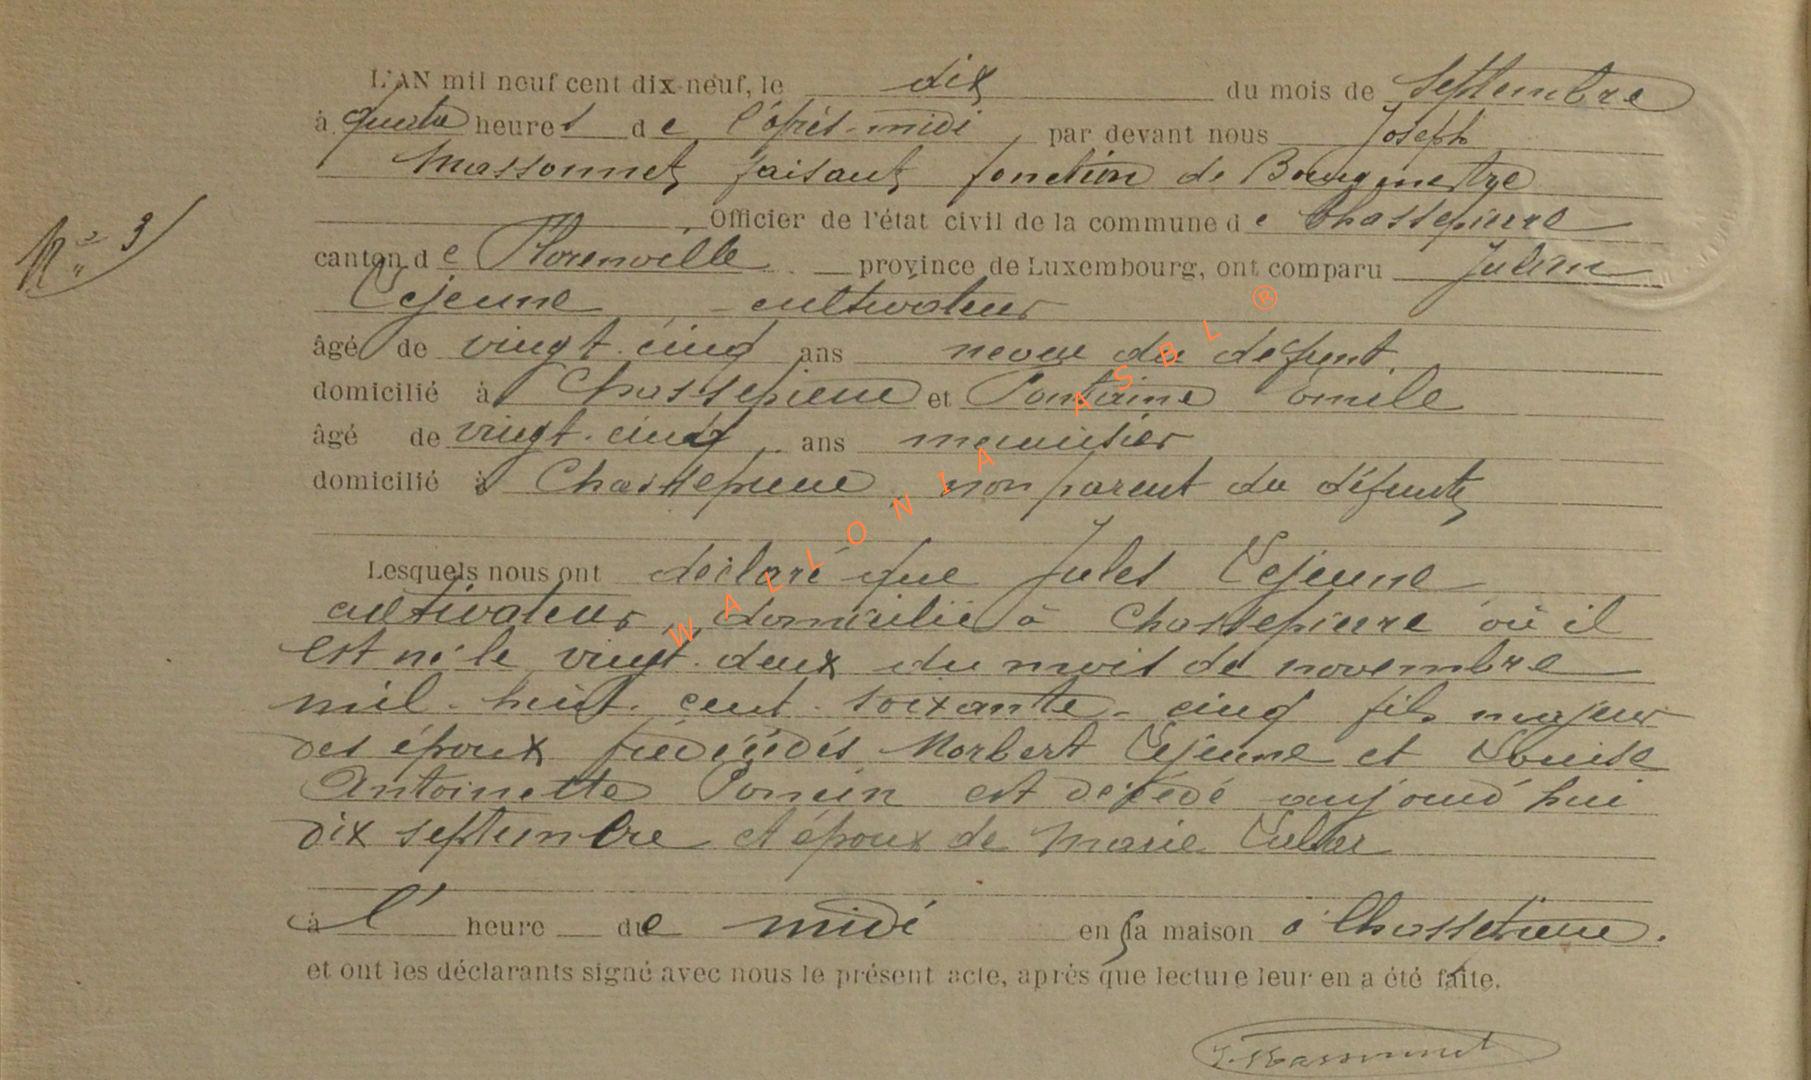 L'AN mil neuf cent dix-neuf, le dix du mois de Septembre
à quatre heures de l'après-midi, par devant nous Joseph
Massonnet faisant fonction de Bourgmestre
Nº 3
, Officier de l'état civil de la commune de Chassepierre
canton de Florenville province de Luxembourg, ont comparu Julien
Lejeune cultivateur
âgé de vingt-cinq ans neveu du défunt.
domicilié à Chassepierre et Fontaine Emile
âgé de vingt-cinq ans menuisier
domicilié à Chassepierre, non parent du défunt
Lesquels nous ont déclaré que Jules Lejeune
cultivateur, domicilié à Chassepierre où il
est né le vingt-deux du mois de novembre
mil-huit-cent-soixante-cinq fils majeur
des époux prédécédés Norbert Lejeune et Louise
Antoinette Poncin est décédé aujourd'hui
dix septembre et époux de Marie
à l' heure de midi en sa maison à Chassepierre.
et ont les déclarants signé avec nous le présent acte, après que lecture leur en a été faite.
J. Massonnet
WALLONIA ASBL ®